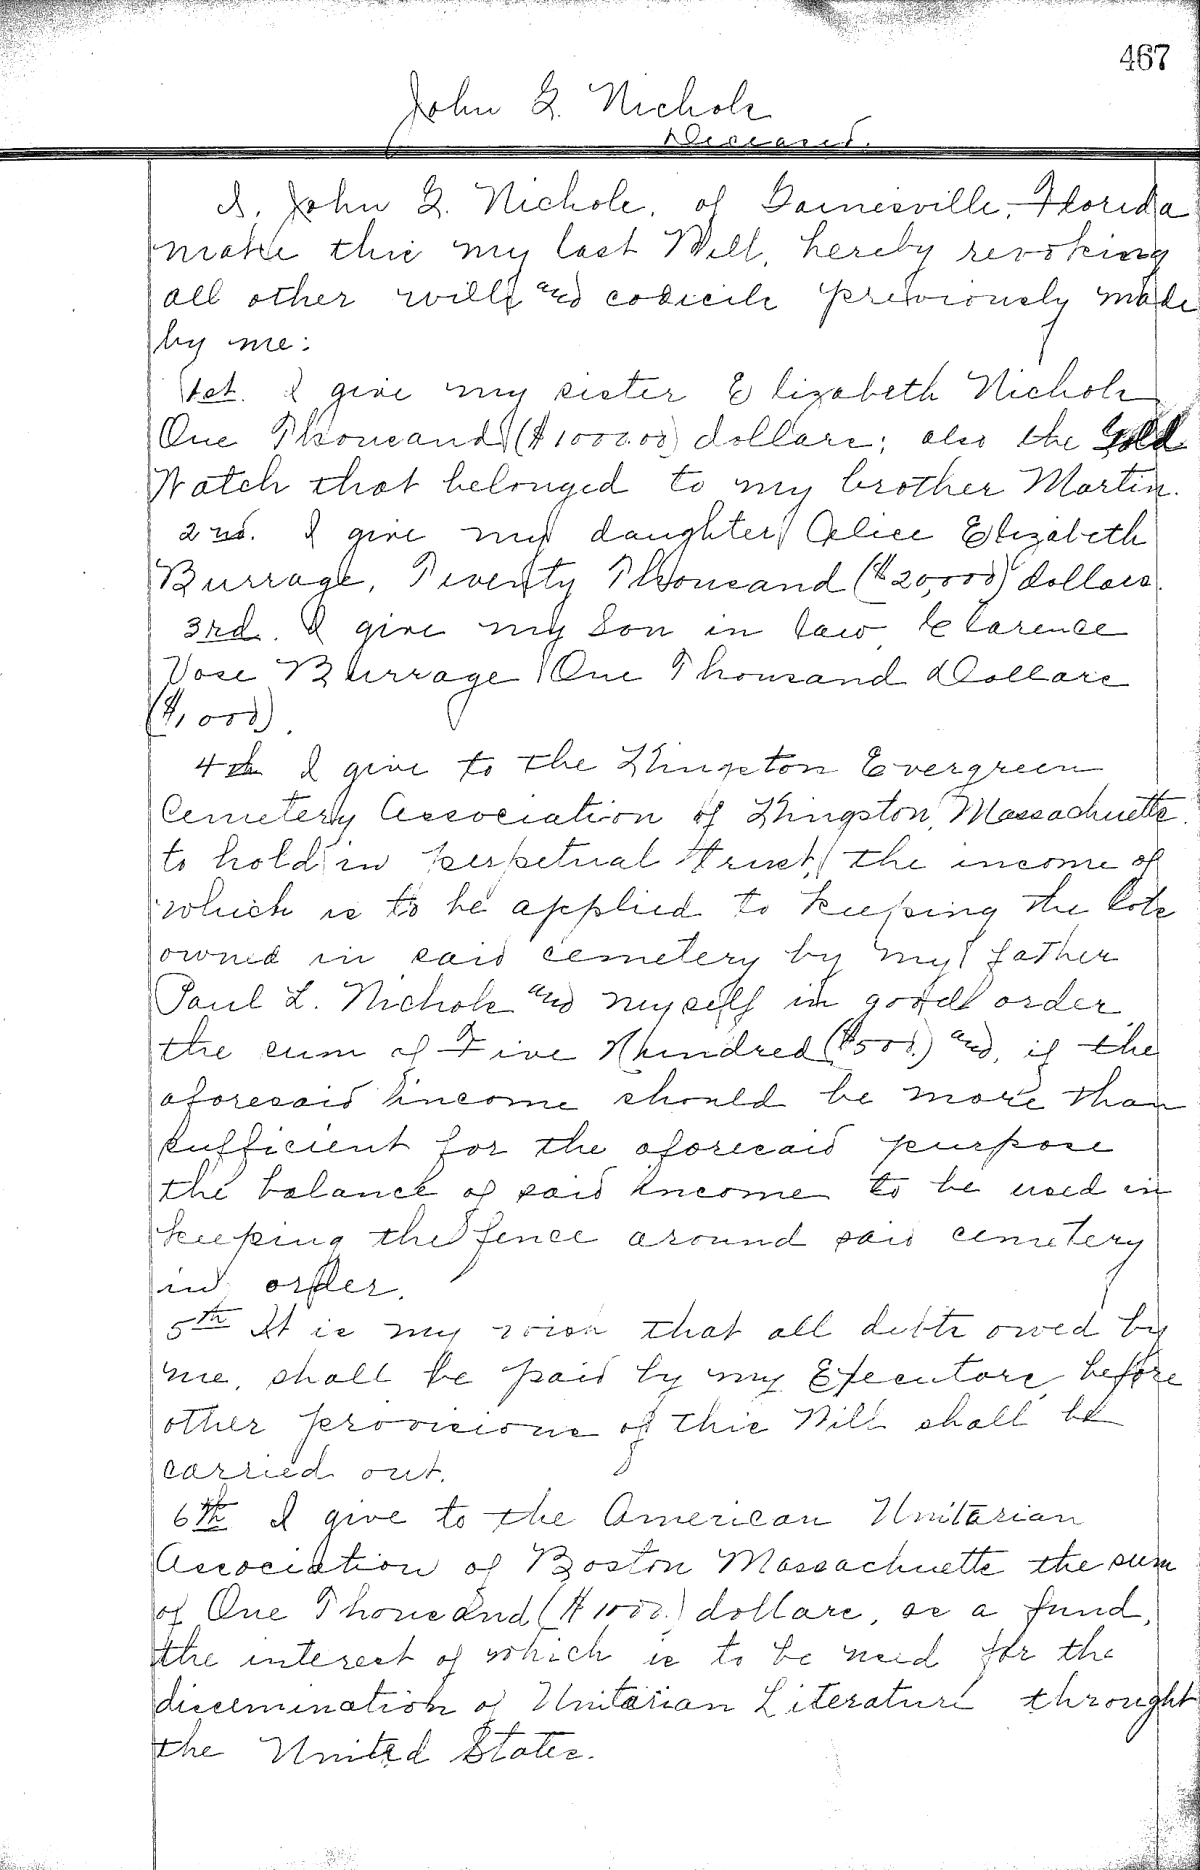 467
John G. Nichols
Deceased.
I, John G. Nichols, of Gainesville, Florida
make this my last Will, hereby revoking
all other wills and codicils previously made
by me:
1st. I give my sister Elizabeth Nichols
One Thousand ($1000.00) dollars; also the Gold
Watch that belonged to my brother Martin.
2nd. I give my daughter Alice Elizabeth
Burrage, Twenty Thousand ($20,000) dollars.
3rd. I give my Son in law, Clarence
Vose Burrage One Thousand Dollars
($1,000).
4th I give to the Kingston Evergreen
Cemetery Association of Kingston, Massachusetts.
to hold in perpetual trust, the income of
which is to be applied to keeping the lots
owned in said cemetery by my father
Paul L. Nichols and myself in good order
the sum of Five Hundred ($500.) and, if the
aforesaid income should be more than
sufficient for the aforesaid purpose
the balance of said income to be used in
keeping the fence around said cemetery
in order.
5th It is my wish that all debts owed by
me, shall be paid by my Executors, before
other provisions of this Will shall be
carried out.
6th I give to the American Unitarian
Association of Boston Massachuetts the sum
of One Thousand ($1000.) dollars, as a fund,
the interest of which is to be used for the
dissemination of Unitarian Literature throught
the United States.